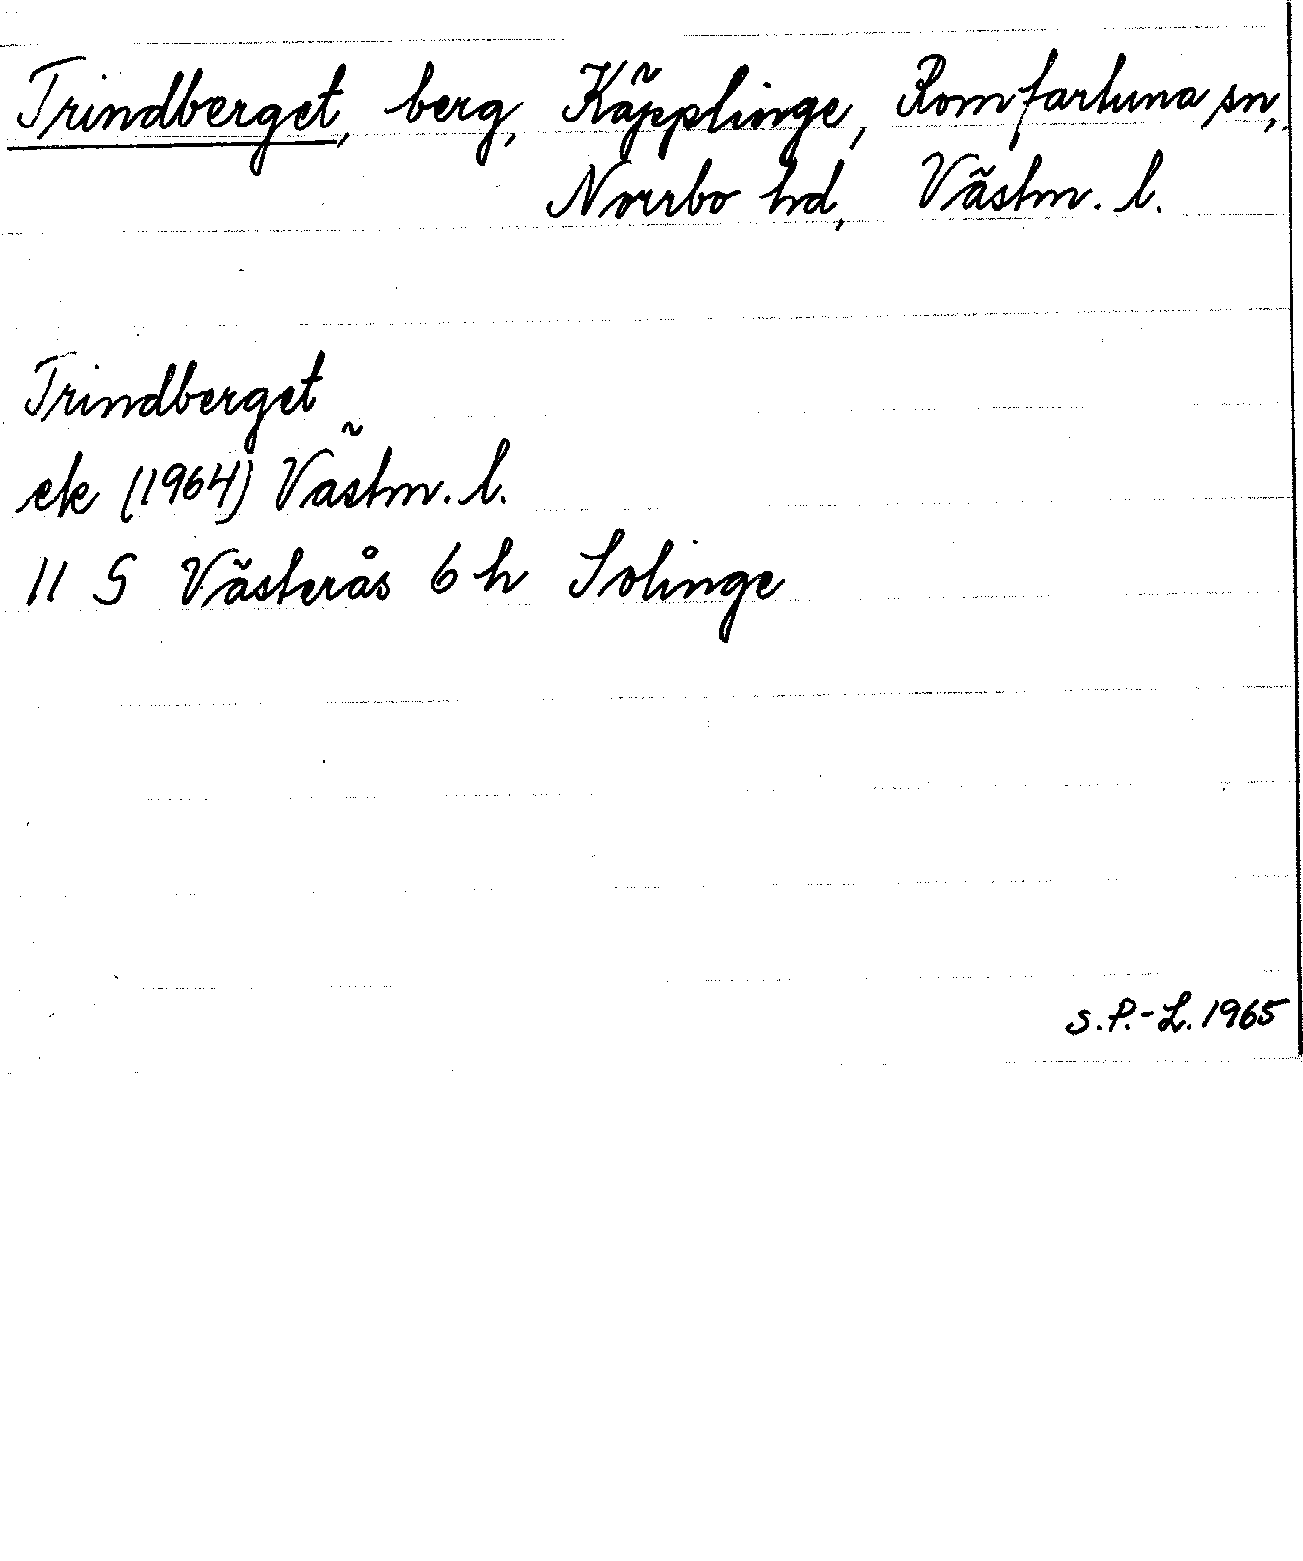 Trindberget, berg, Käpplinge, Romfartuna sn,
Norrbo hd, Västm. l.
Trindberget
ek (1964) Västm. l.
11 G Västerås 6 h Solinge
S. P.-L. 1965